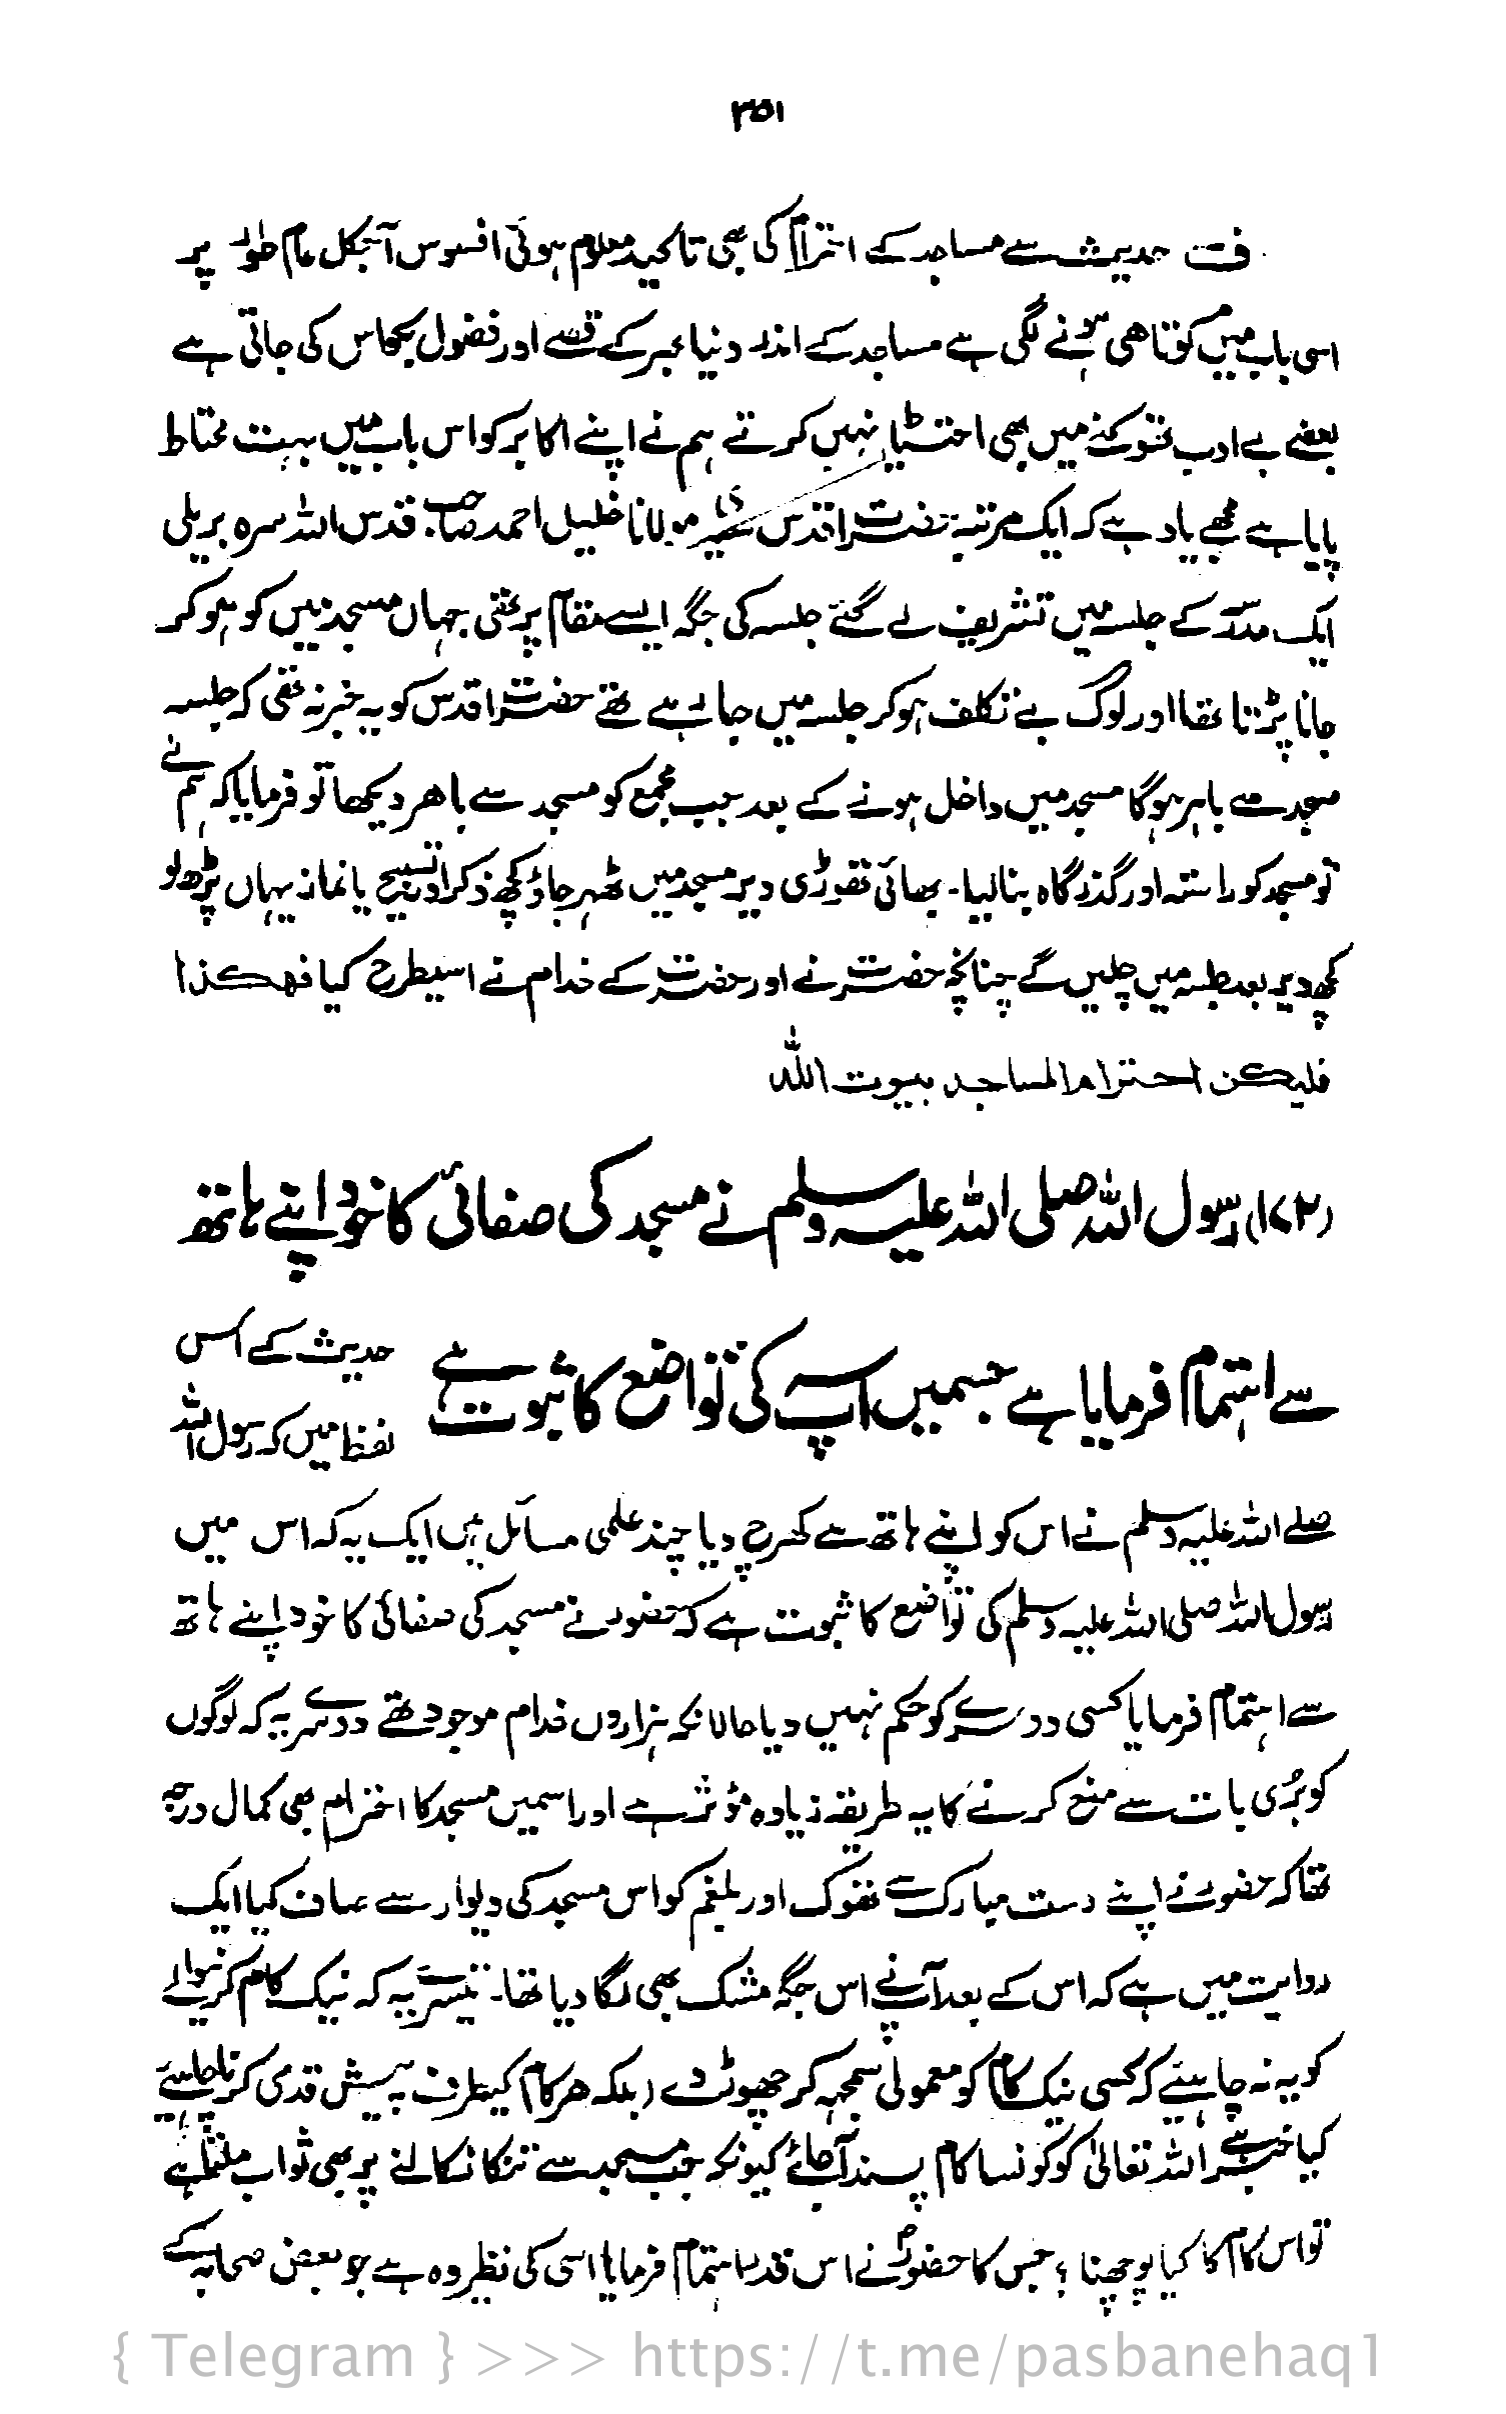 ۳۵۱
ف حدیث سے مساجد کے احترام کی بھی تاکید معلوم ہوئی افسوس آجکل عام طور پر
اسی باب میں کوتاھی ہونے لگی ہے مساجد کے اندر دنیا بھر کے قصے اور فضول بکواس کی جاتی ہے
بعضے بے ادب تھوکنے میں بھی احتیاط نہیں کرتے ہم نے اپنے اکابر کو اس باب میں بہت محتاط
پایا ہے مجھے یاد ہے کہ ایک مرتبہ حضرت اقدس سیدی مولانا خلیل احمد صاحب قدس اللہ سرہ بریلی
ایک مدرسہ کے جلسہ میں تشریف لے گئے جلسہ کی جگہ ایسے مقام پر تھی جہاں مسجد میں کو ہو کر
جانا پڑتا تھا اور لوگ بے تکلف ہو کر جلسہ میں جا رہے تھے حضرت اقدس کو یہ خبر نہ تھی کہ جلسہ
مسجد سے باہر ہوگا مسجد میں داخل ہونے کے بعد جب مجمع کو مسجد سے باھر دیکھا تو فرمایا کہ ہم نے
تو مسجد کو راستہ اور گذرگاہ بنا لیا۔ بھائی تھوڑی دیر مسجد میں ٹھہر جاؤ کچھ ذکر اور تسبیح یا نماز یہاں پڑھ لو
کچھ دیر بعد جلسہ میں چلیں گے چنانچہ حضرت نے اور حضرت کے خدام نے اسیطرح کیا فھکذا
فلیکن احترام المساجد بیوت اللہ
(۱۷۲) رسول اللہ صلی اللہ علیہ وسلم نے مسجد کی صفائی کا خود اپنے ہاتھ
سے اہتمام فرمایا ہے جسمیں آپ کی تواضع کا ثبوت ہے
حدیث کے اس
لفظ میں کہ رسول اللہ
صلے اللہ علیہ وسلم نے اس کو اپنے ہاتھ سے کھرچ دیا چند علمی مسائل ہیں ایک یہ کہ اس میں
رسول اللہ صلی اللہ علیہ وسلم کی تواضع کا ثبوت ہے کہ حضور نے مسجد کی صفائی کا خود اپنے ہاتھ
سے اہتمام فرمایا کسی دوسرے کو حکم نہیں دیا حالانکہ ہزاروں خدام موجود تھے دوسرے یہ کہ لوگوں
کو بُری بات سے منع کرنے کا یہ طریقہ زیادہ مؤثر ہے اور اسمیں مسجد کا احترام بھی کمال درجہ
تھا کہ حضور نے اپنے دست مبارک سے تھوک اور بلغم کو اس مسجد کی دیوار سے صاف کیا ایک
روایت میں ہے کہ اس کے بعد آپ نے اس جگہ مشک بھی لگا دیا تھا۔ تیسرے یہ کہ نیک کام کرنیوالے
کو یہ نہ چاہئے کہ کسی نیک کام کو معمولی سمجھ کر چھوڑ دے (بلکہ ھر کام کیطرف پیش قدمی کرنا چاہئے
کیا خبر ہے اللہ تعالیٰ کو کونسا کام پسند آجائے کیونکہ جب مسجد سے تنکا نکالنے پر بھی ثواب ملتا ہے
تو اس کام کا کیا پوچھنا ؟ جس کا حضورؐ نے اس قدر اہتمام فرمایا اسی کی نظیر وہ ہے جو بعض صحابہ کے
{ Telegram } >>> https://t.me/pasbanehaq1